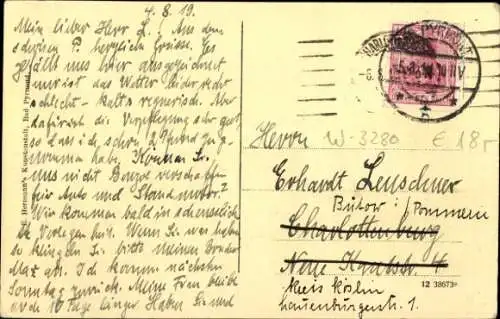 4.8.19.
Mein lieber Herr L.! Aus dem
schönen P. herzliche Grüsse. Es
gefällt uns hier ausgezeichnet
nur ist das Wetter leider recht
schlecht - kalt & regnerisch. Aber
dafür ist die Verpflegung sehr gut
so das ich schon 2 Pfund ge-
nommen habe. Können Sie
uns nicht Benzol verschaffen
für Auto und Standmotor?
Wir kommen bald in scheusslich
Verlegenheit. Wenn Sie was haben
so klingeln Sie bitte meinen Bruder
Max an. Ich komme nächsten
Sonntag zurück. Meine Frau bleibt
noch 10 Tage länger. Haben Sie und
F. Hermann's Kunstanstalt, Bad Pyrmont.
PYRMONT
Herrn W-3280 € 18,-
Erhardt Leuschner
Bütow i/Pommern
Charlottenburg
Neue Kantstr. 4
Lauenburgerstr. 1.
12 38673